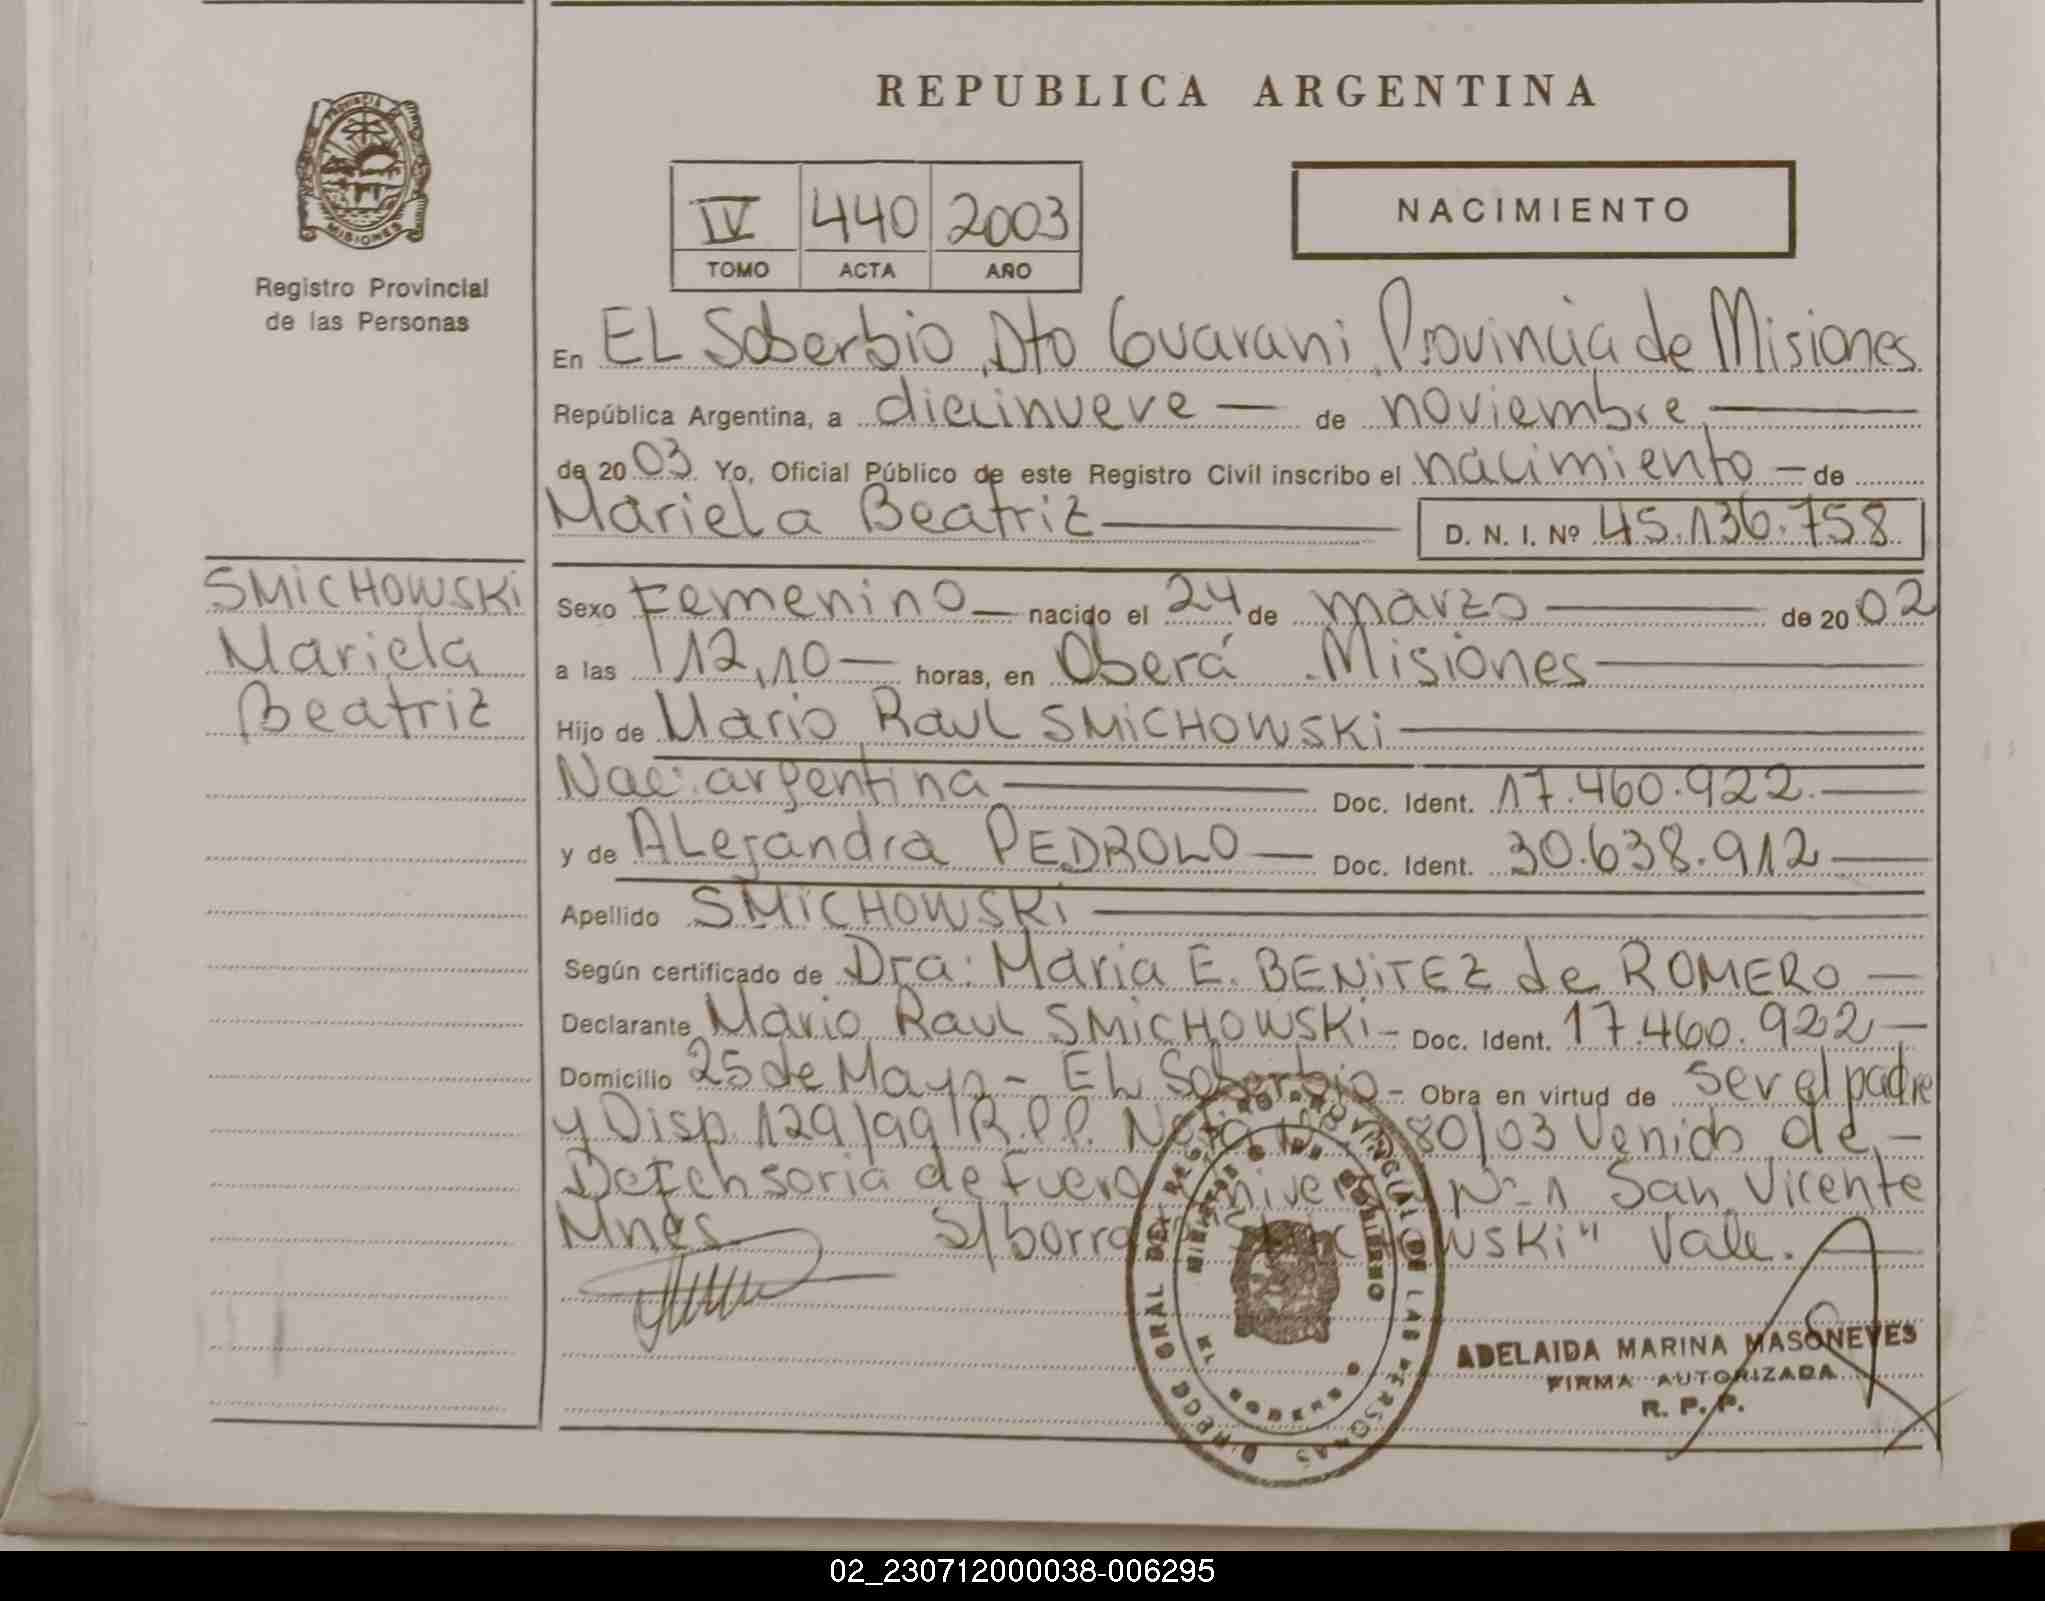 REPUBLICA ARGENTINA
PROVINCIA
MISIONES
Registro Provincial
de las Personas
IV 440 2003
TOMO ACTA AÑO
NACIMIENTO
En EL Soberbio, Dto Guarani, Provincia de Misiones
República Argentina, a diecinueve — de noviembre —
de 2003 Yo, Oficial Público de este Registro Civil inscribo el nacimiento — de
Mariela Beatriz — D. N. I. Nº 45.136.758
SMiCHOWSKi
Mariela
Beatriz
Sexo Femenino — nacido el 24 de marzo — de 2002
a las 12,10 — horas, en Oberá Misiones —
Hijo de Mario Raul SMiCHOWSKi —
Nac: argentina — Doc. Ident. 17.460.922 —
y de ALejandra PEDROLO — Doc. Ident. 30.638.912 —
Apellido SMiCHOWSKi —
Según certificado de Dra: Maria E. BENiTEZ de ROMERO —
Declarante Mario Raul SMiCHOWSKi - Doc. Ident. 17.460.922 —
Domicilio 25 de Mayo - EL Soberbio - Obra en virtud de ser el padre
y Disp. 129/99 R.P.P. Nota 80/03 Venido de —
Defensoria de Fuero Universal Nº 1 San Vicente
Mnes S/borrado "SMiCHOWSKi" Vale.
DIRECC. GRAL DEL REGISTRO PROVINCIAL DE LAS PERSONAS
MINISTERIO DE GOBIERNO
ADELAIDA MARINA MASONEVES
FIRMA AUTORIZADA
R. P. P.
02_230712000038-006295